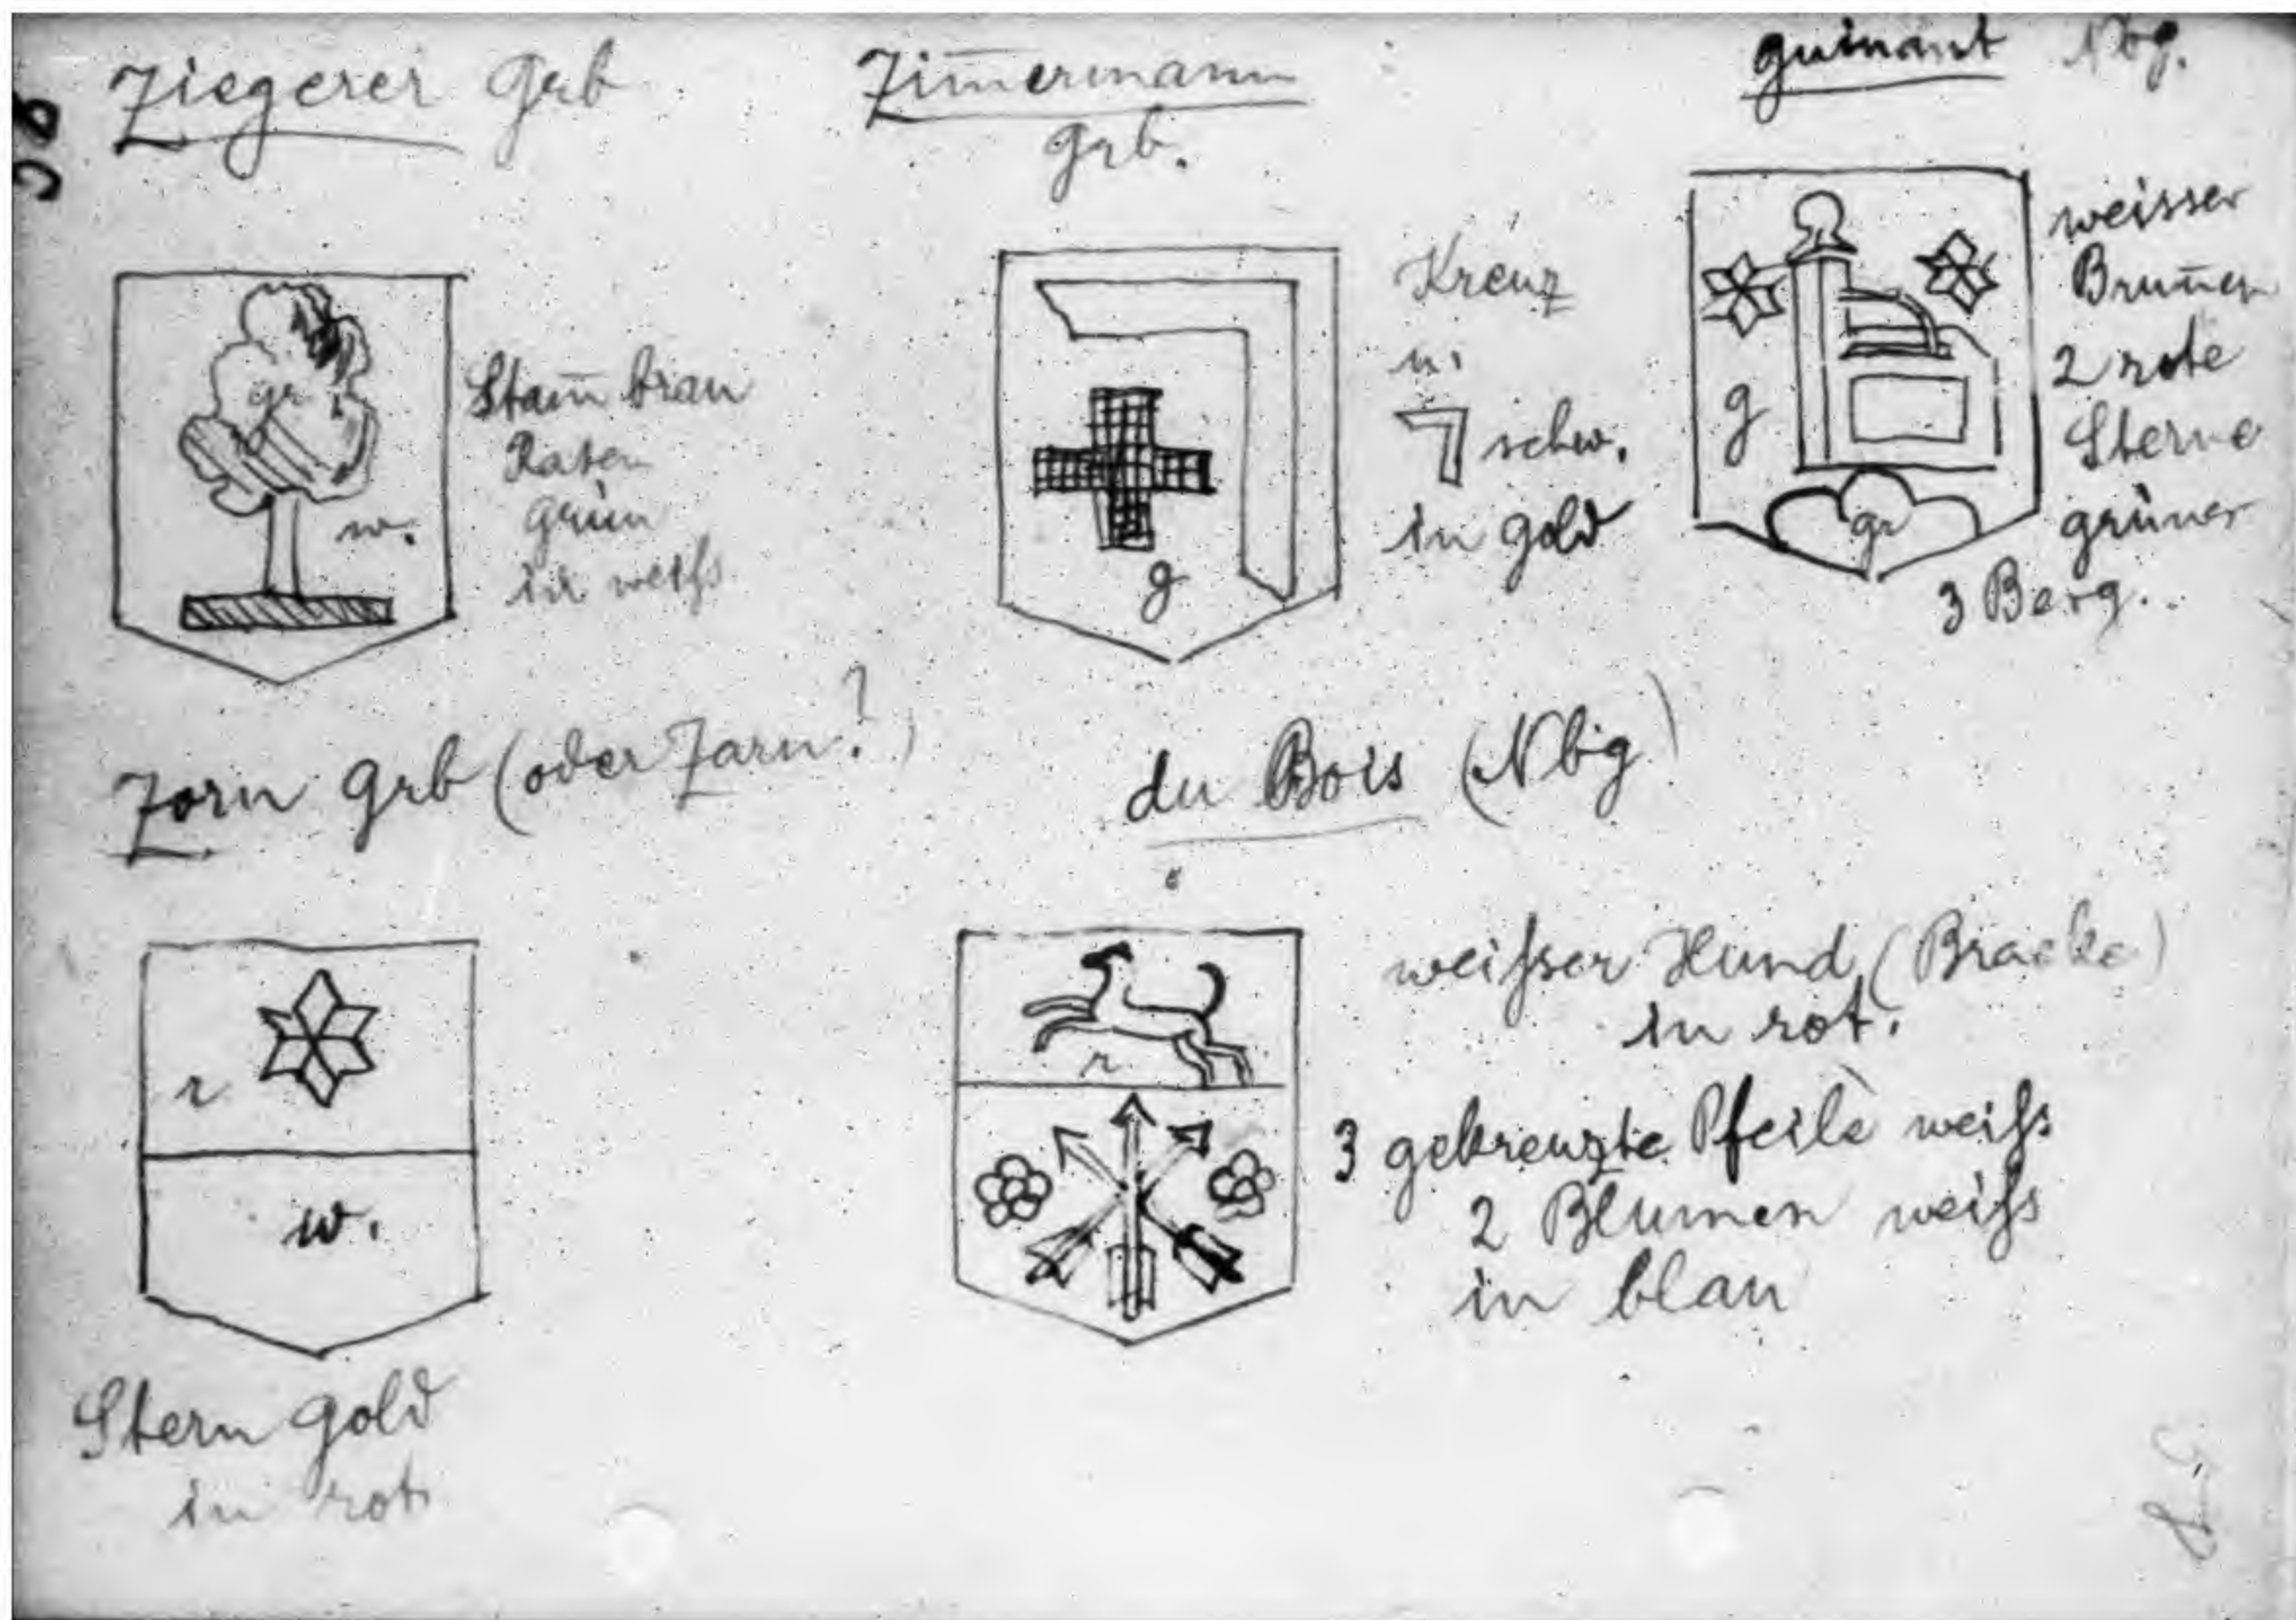 Ziegerer Grb
gr
w.
Stam̄ braun
Rasen
Grün
in weiss
Zim̄ermann
Grb.
g
Kreuz
u.
schw.
in Gold
Guinant Nbg.
g
gr
weisser
Brun̄en
2 rote
Sterne
grüner
3 Berg.
Zorn Grb (oder Zarn?)
r
w.
Stern Gold
in rot
du Bois (Nbig)
r
weisser Hund (Bracke)
in rot.
3 gekreuzte Pfeile weiss
2 Blumen weiss
in blau